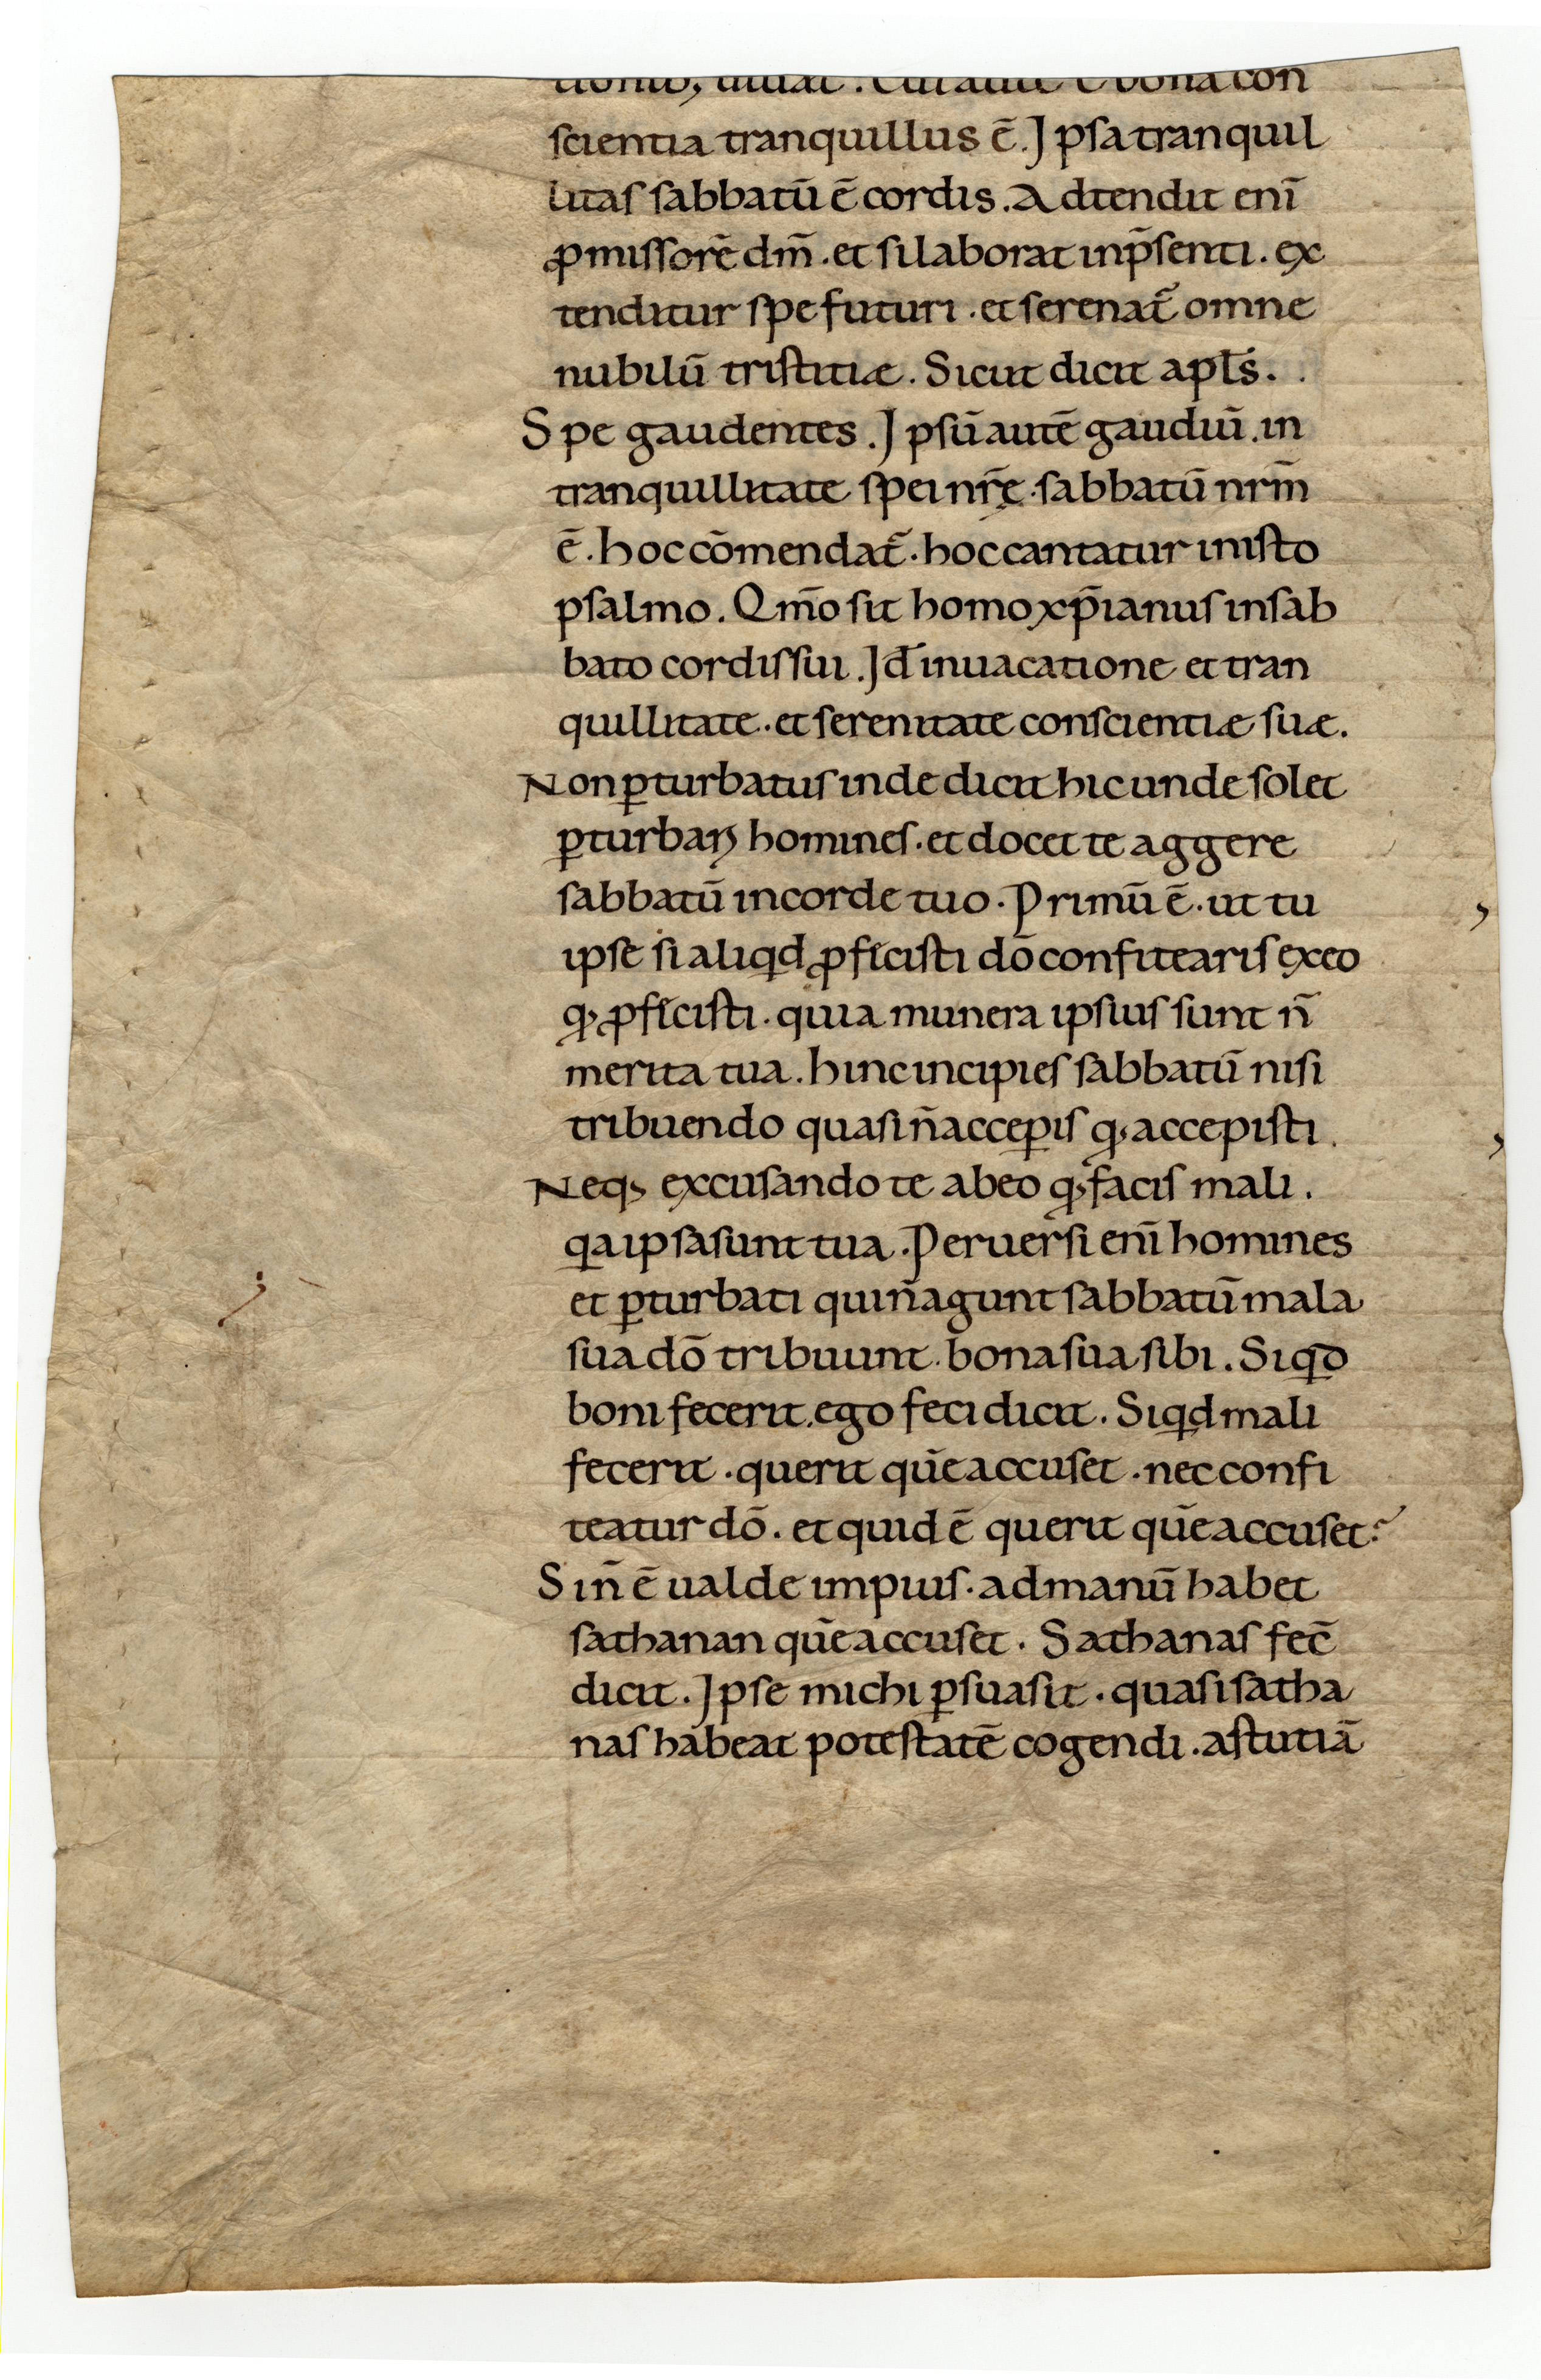 bona con
scientia tranquillus ē. Ipsa tranquil
litas sabbatū ē cordis. Adtendit enī
ꝓmissorē dm̄. et si laborat in p̄senti. ex
tenditur spe futuri. et serenat̄ omne
nubilū tristitiæ. Sicut dicit apl̄s.
Spe gaudentes. Ipsū autē gaudiū. in
tranquillitate spei nr̄ę. sabbatū nrm̄
ē. hoc cōmendat̄. hoc cantatur in isto
psalmo. Qm̄o sit homo xp̄ianus in sab
bato cordis sui. Id̄ in uacatione et tran
quillitate. et serenitate conscientiæ suæ.
Non ꝑturbatus inde dicit hic unde solet
ꝑturbari homines. et docet te aggere
sabbatū in corde tuo. Primū ē. ut tu
ipse si aliqd ꝓfecisti dō confitearis ex eo
qꝫ ꝓfecisti. quia munera ipsius sunt n̄
merita tua. hinc incipies sabbatū nisi
tribuendo quasi n̄ acceꝑis qꝫ accepisti.
Neqꝫ excusando te ab eo qꝫ facis mali.
qa ipsa sunt tua. Peruersi enī homines
et ꝑturbati qui n̄ agunt sabbatū mala
sua dō tribuunt. bona sua sibi. Si qd
boni fecerit. ego feci dicit. Si qd mali
fecerit. querit quē accuset. nec confi
teatur dō. et quid ē querit quē accuset?
Si n̄ ē ualde impius. ad manū habet
sathanan quē accuset. Sathanas fec̄
dicit. Ipse michi ꝑsuasit. quasi satha
nas habeat potestatē cogendi. astutiā